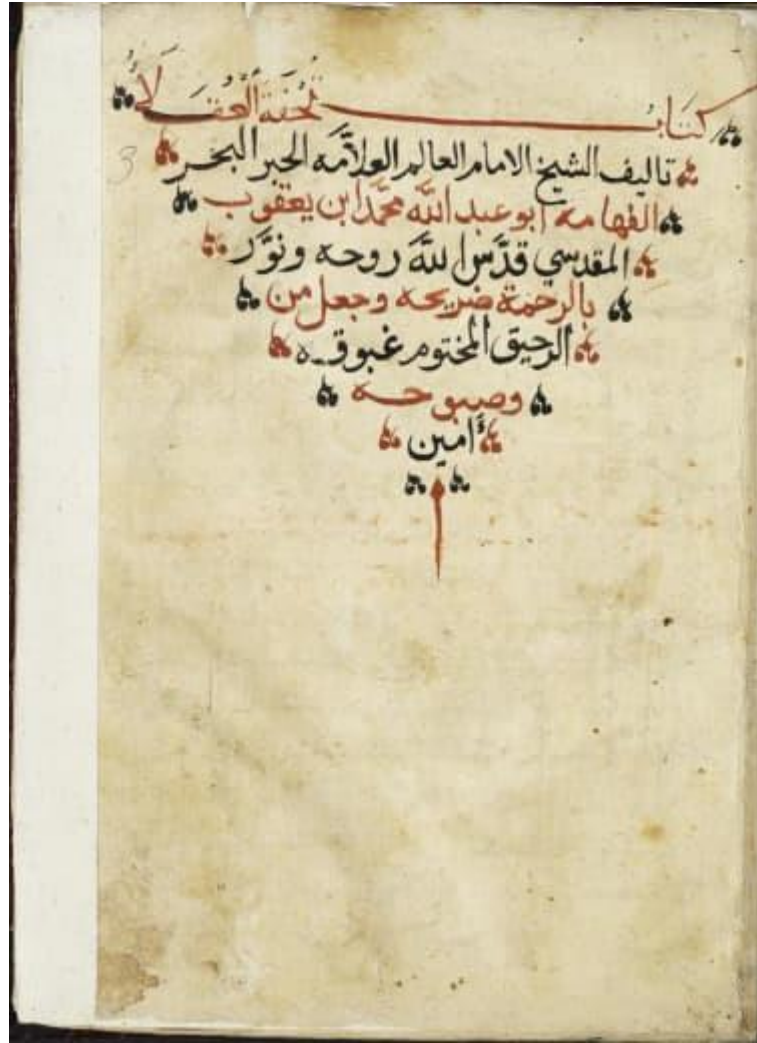 كتاب تحفة العقلاء
تاليف الشيخ الامام العالم العلامه الحبر البحر
الفهامه ابو عبد الله محمد ابن يعقوب
المقدسي قدَّس اللَّه روحه ونوَّر
بالرحمة ضريحه وجعل من
الرحيق المختوم غبوقه
وصبوحه
أمين
3